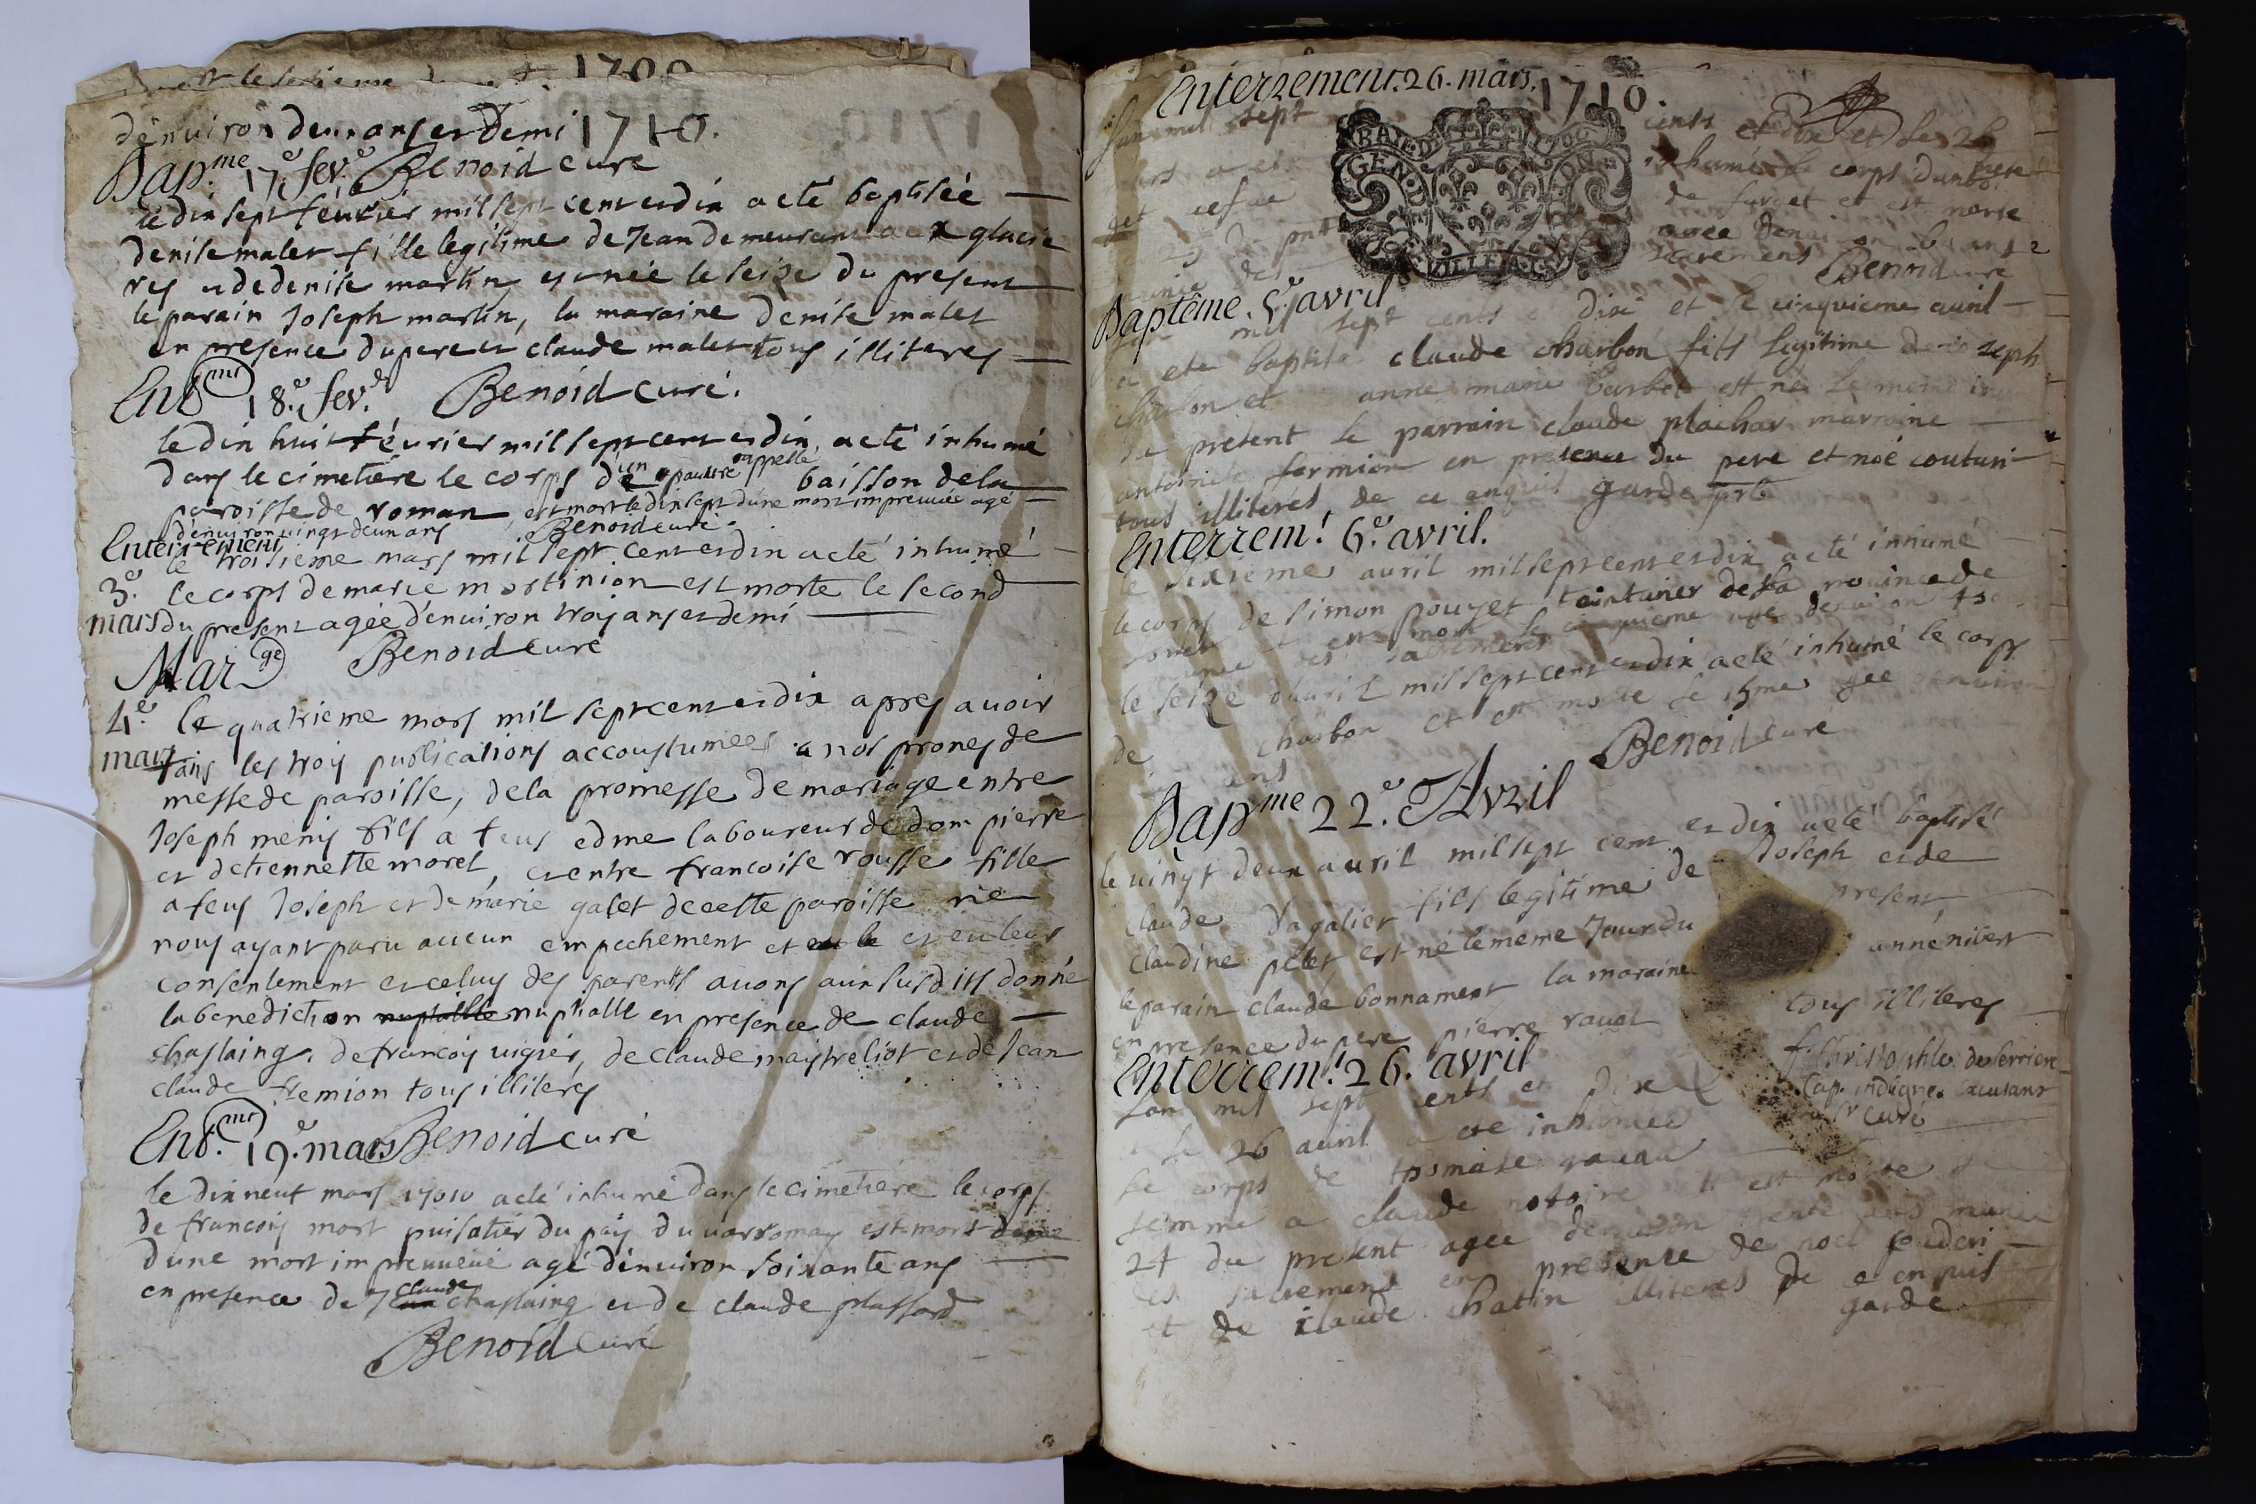 1700
d'enuiron deux ans et Demi 1710.
Bap.me 17.e fev.e Benoid curé
le dix sept février mil sept cent et dix a eté baptisée
denise malet fille legitime de Jean demeurant aux glacie
res et de denise martin est née le seize du present
le parain Joseph martin, la maraine denise malet
en presence du pere et claude malet tous illiteres
Ent.mt 18.e fev.e Benoid curé.
le dix huit février mil sept cent et dix a eté inhumé
dans le cimetiere le corps d'un pauvre appellé baisson de la
paroisse de roman est mort le dix sept d'une mort impreuuüe agé
d'enuiron vingt deux ans Benoid curé.
Enterrement le troisieme mars mil sept cent et dix a eté inhumé
3.e le corps de marie martinion est morte le second
mars du present agée d'enuiron trois ans et demi
Benoid curé
Mar.ge
4.e le quatrieme mars mil sept cent et dix apres avoir
mars fais les trois publications accoustumées a nos prones de
messe de paroisse, de la promesse de mariage entre
Joseph menis fils a feus edme laboureur de dom pierre
et detiennette morel, et entre francoise rousse fille
a feus Joseph et de marie galet de cette paroisse ne
nous ayant paru aucun empechement et eu le et eu leur
consentement et celuy des parents auons aux susdits donné
la benediction nuptialle nuptialle en presence de claude
chaslaing, de francois uigier, de claude maistreliot et de Jean
claude fremion tous illiteres
Ent.mt 19.e mars Benoid curé
le dix neuf mars 17010 a eté inhumé dans le cimetiere le corps
de francois mort puisatier du païs du varromay est mort
d'une mort impreuueüe agé d'enuiron soixante ans
en presence de claude chaslaing et de claude plassard
Benoid curé
Enterrement. 26. mars. 1710.
lan mil sept cents et dix et le 26
mars a eté inhumé le corps dun
GEN. D
VILLE A. C.
de et est morte
agee denuiron 6 ans
sacremens Benoid curé
Baptême. 5.e avril
mil sept cents e dix et le cinquieme auril
a ete baptise claude charbon fils legitime de joseph
charbon et anne marie barbet est né le meme jour
du present le parrain claude plachar marraine
antoinete formion en presence du pere et noé couturi
tous illiteres de ce enquis garde
Enterrem.t 6.e avril.
le sixieme auril mil sept cent et dix a eté inhumé
le corps de simon pouzet teinturier de la prouince de
est mort le cinquieme agé denuiron
des sacremens
le seize d'auril mil sept cent et dix a eté inhumé le corps
de charbon et est morte le 15me agee denuiron
ans Benoid curé
Bap.me 22.e Avril
le vingt deux auril mil sept cent et dix a eté baptisé
claude Vagalier fils legitime de Joseph et de
claudine pelet est né le meme Jour du present,
le parain claude bonnament la maraine anne nitert
en presence du pere pierre raual tous illiteres
f. Christophle de ferriere
Cap. indigne. excusant
le Sr curé
Enterrem.t 26. avril
lan mil sept cents et dix
le 26 auril a ete inhumée
le corps de tomase
femme a claude notoire et est morte le
24 du present agee denuiron trente ans munie
des sacremens en presence de noel couderi
et de claude chatin illiteres de ce enquis
garde